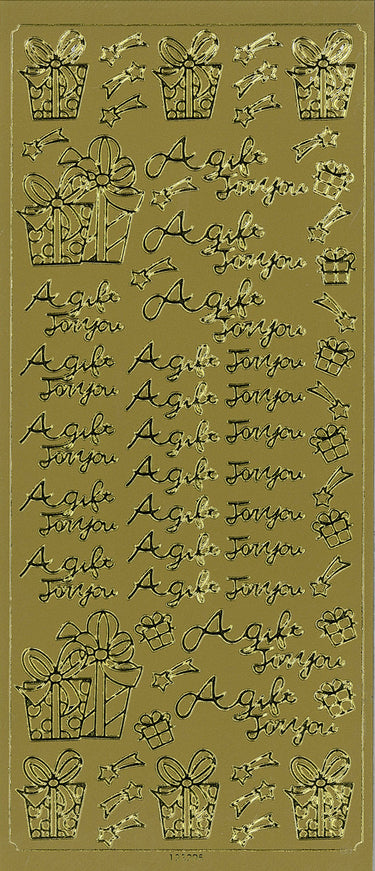 A gift
For you
A gift
For you
A gift
For you
A gift
For you
A gift
For you
A gift
For you
A gift
For you
A gift
For you
A gift
A gift
A gift
A gift
A gift
A gift
A gift
For you
For you
For you
For you
For you
For you
For you
A gift
For you
A gift
For you